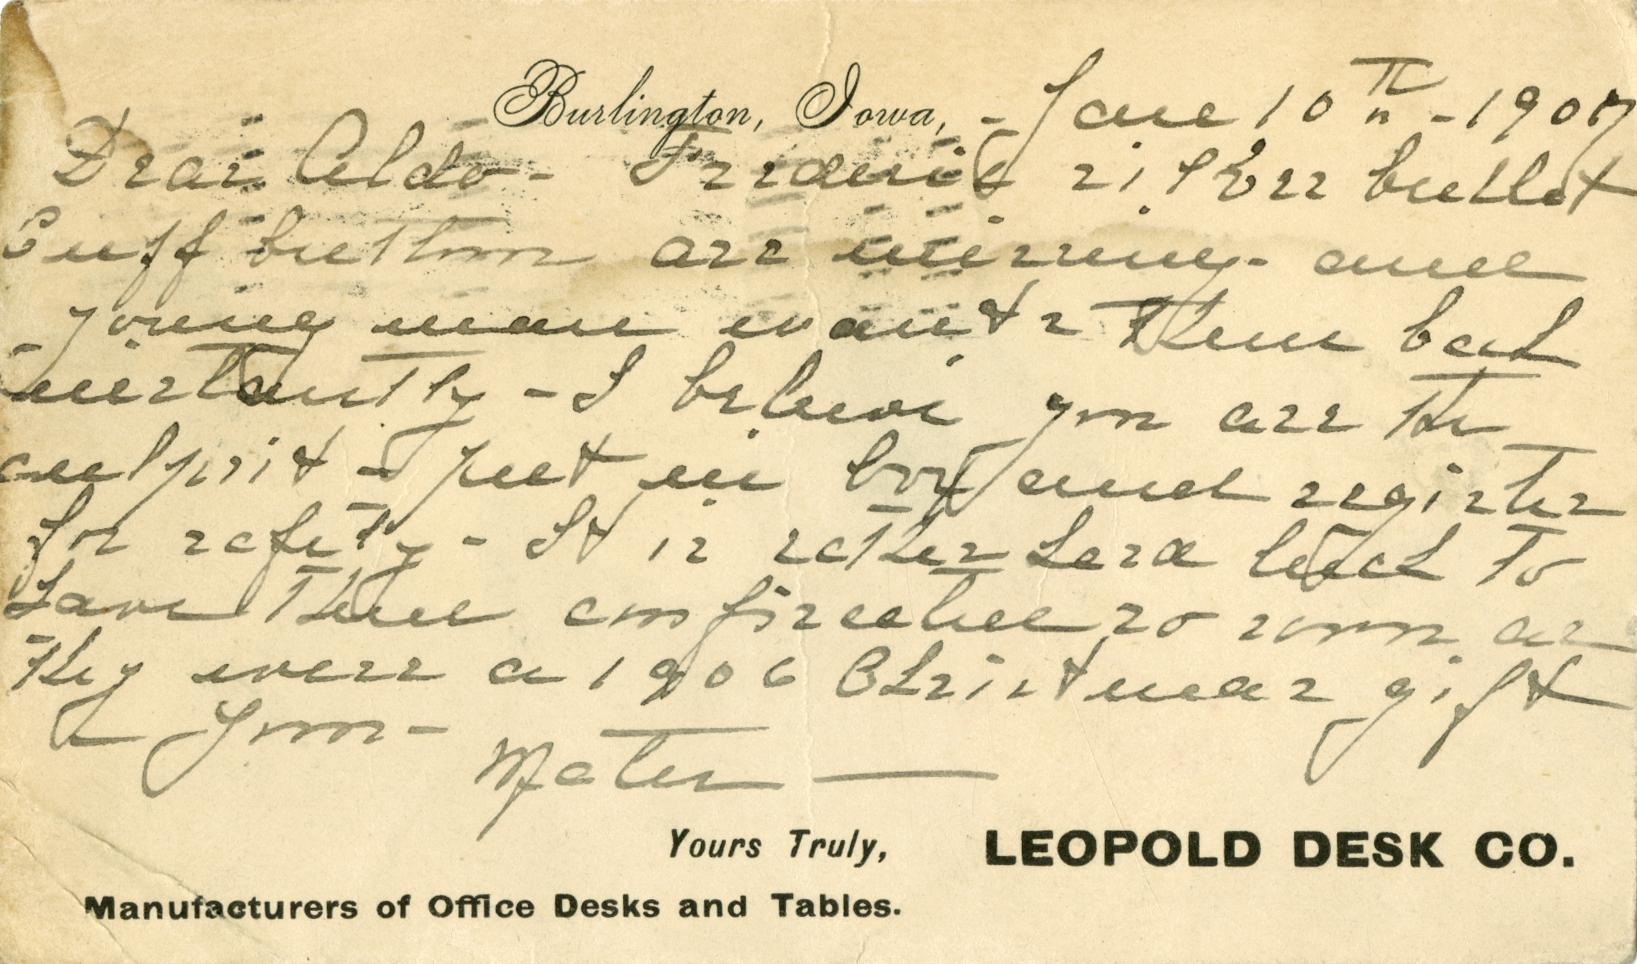 Burlington, Iowa, - Jan 10th - 1907
Dear Aldo - Frederic's silver bullet
Cuff buttons are missing - and
young man wants them back
instantly - I believe you are the
culprit - put in box and register
for safety - It is rather hard luck to
have them confiscated so soon as
they were a 1906 Christmas gift
Yours -
Mater
Yours Truly, LEOPOLD DESK CO.
Manufacturers of Office Desks and Tables.